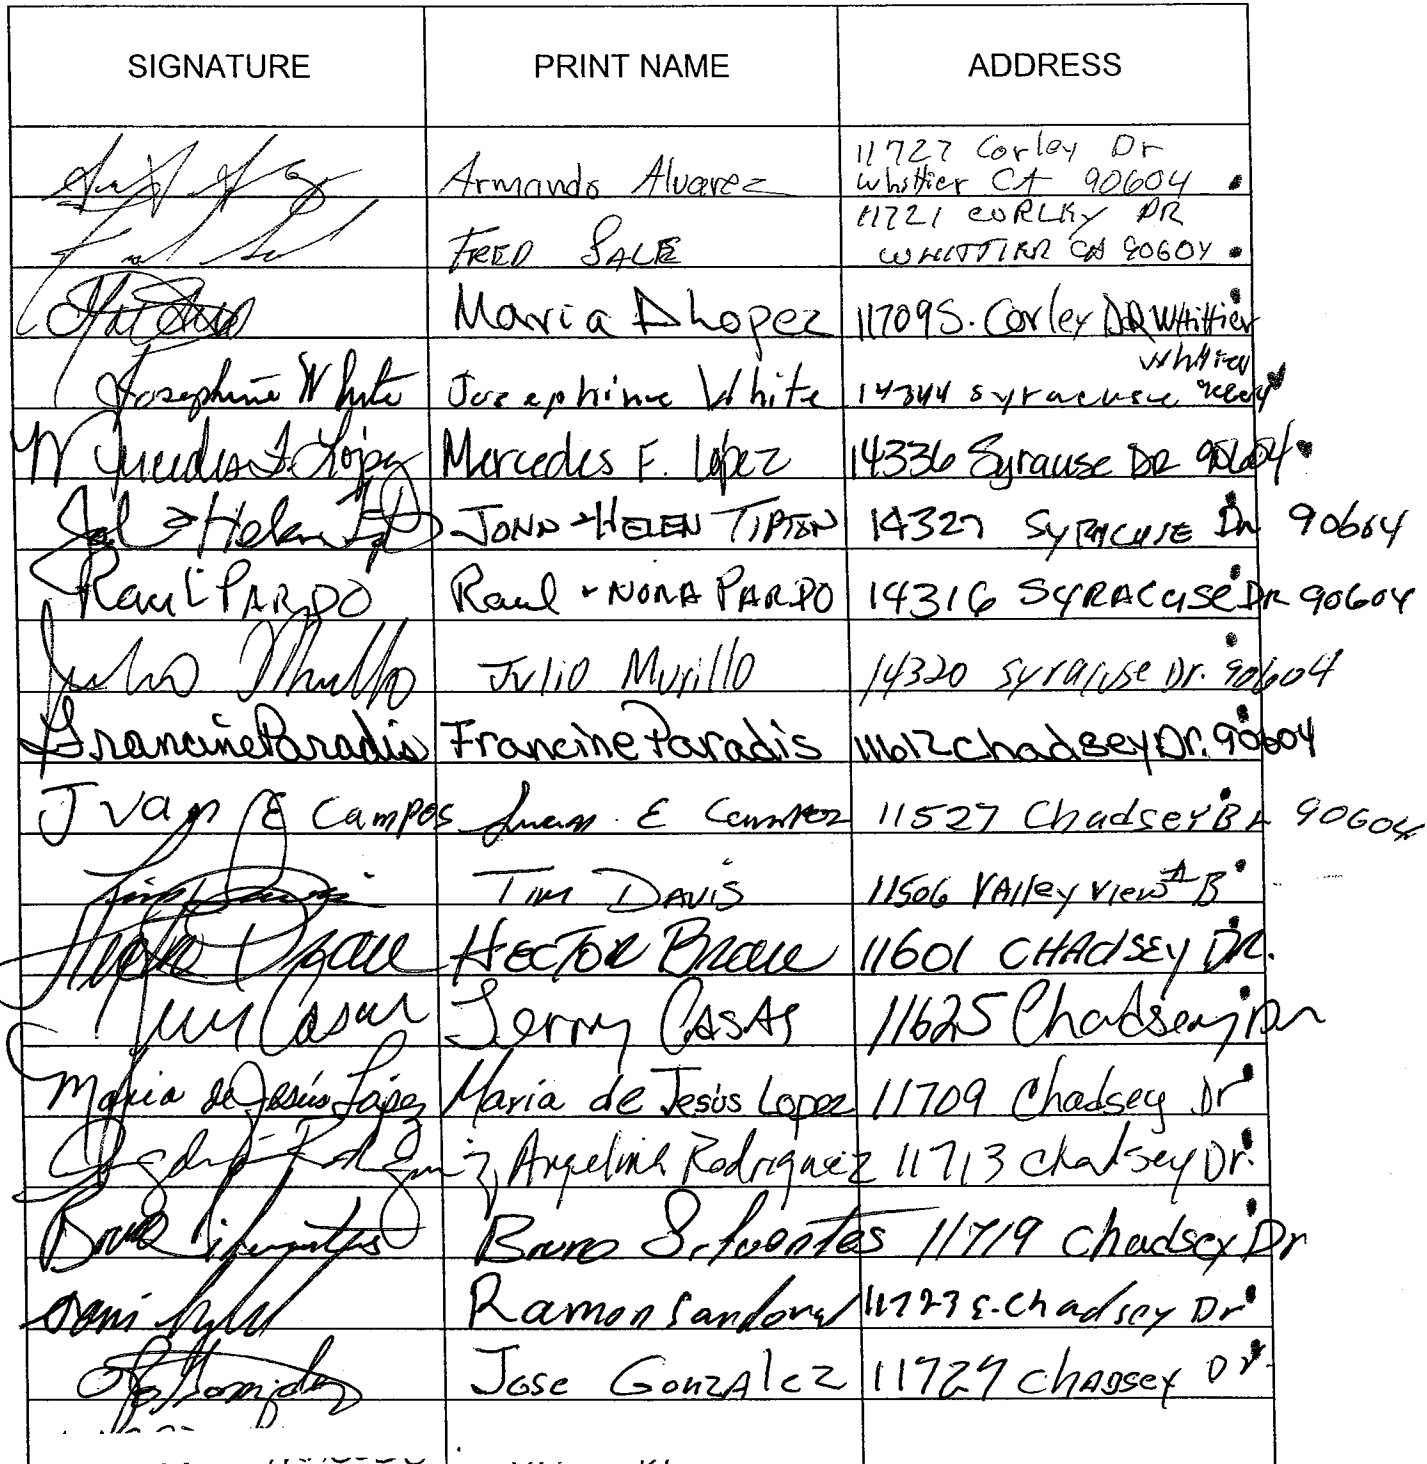 SIGNATURE PRINT NAME ADDRESS
11727 Corley Dr
Armando Alvarez Whittier CA 90604
11721 CORLKY DR
FRED SALE WHITTIER CA 90604
Maria A Lopez 11709 S. Corley DR Whittier
Whittier
Josephine White Josephine White 14344 Syracuse
Mercedes F. López Mercedes F. López 14336 Syrause DR 90604
Helen JOHN + HELEN TIPTON 14327 SYRACUSE Dr 90604
Raul PARDO Raul + NORA PARDO 14316 SYRACUSE DR 90604
Julio Murillo Julio Murillo 14320 Syracuse Dr. 90604
Francine Paradis Francine Paradis 11612 Chadsey Dr. 90604
Juan E Campos Juan E 11527 Chadsey 90604
Tim Davis TIM DAVIS 11506 Valley View # B
HECTOR 11601 CHADSEY DR.
Jerry CASAS 11625 Chadsey Dr
Maria de Jesús López Maria de Jesús Lopez 11709 Chadsey Dr
Angelina Rodriguez 11713 Chadsey Dr.
Bruno Sifuentes Bruno Sifuentes 11719 Chadsey Dr
Ramon Sandoval 11723 S. Chadsey Dr
Jose Gonzalez 11727 Chadsey Dr